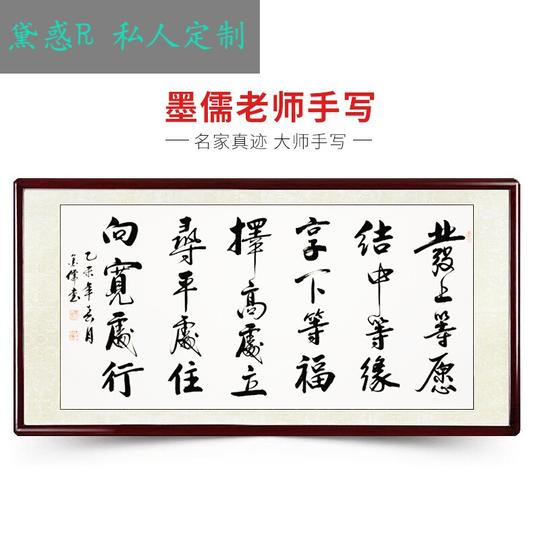 黛惑R 私人定制
墨儒老师手写
名家真迹 大师手写
發上等愿
结中等缘
享下等福
擇高處立
尋平處住
向寬處行
乙未年春月